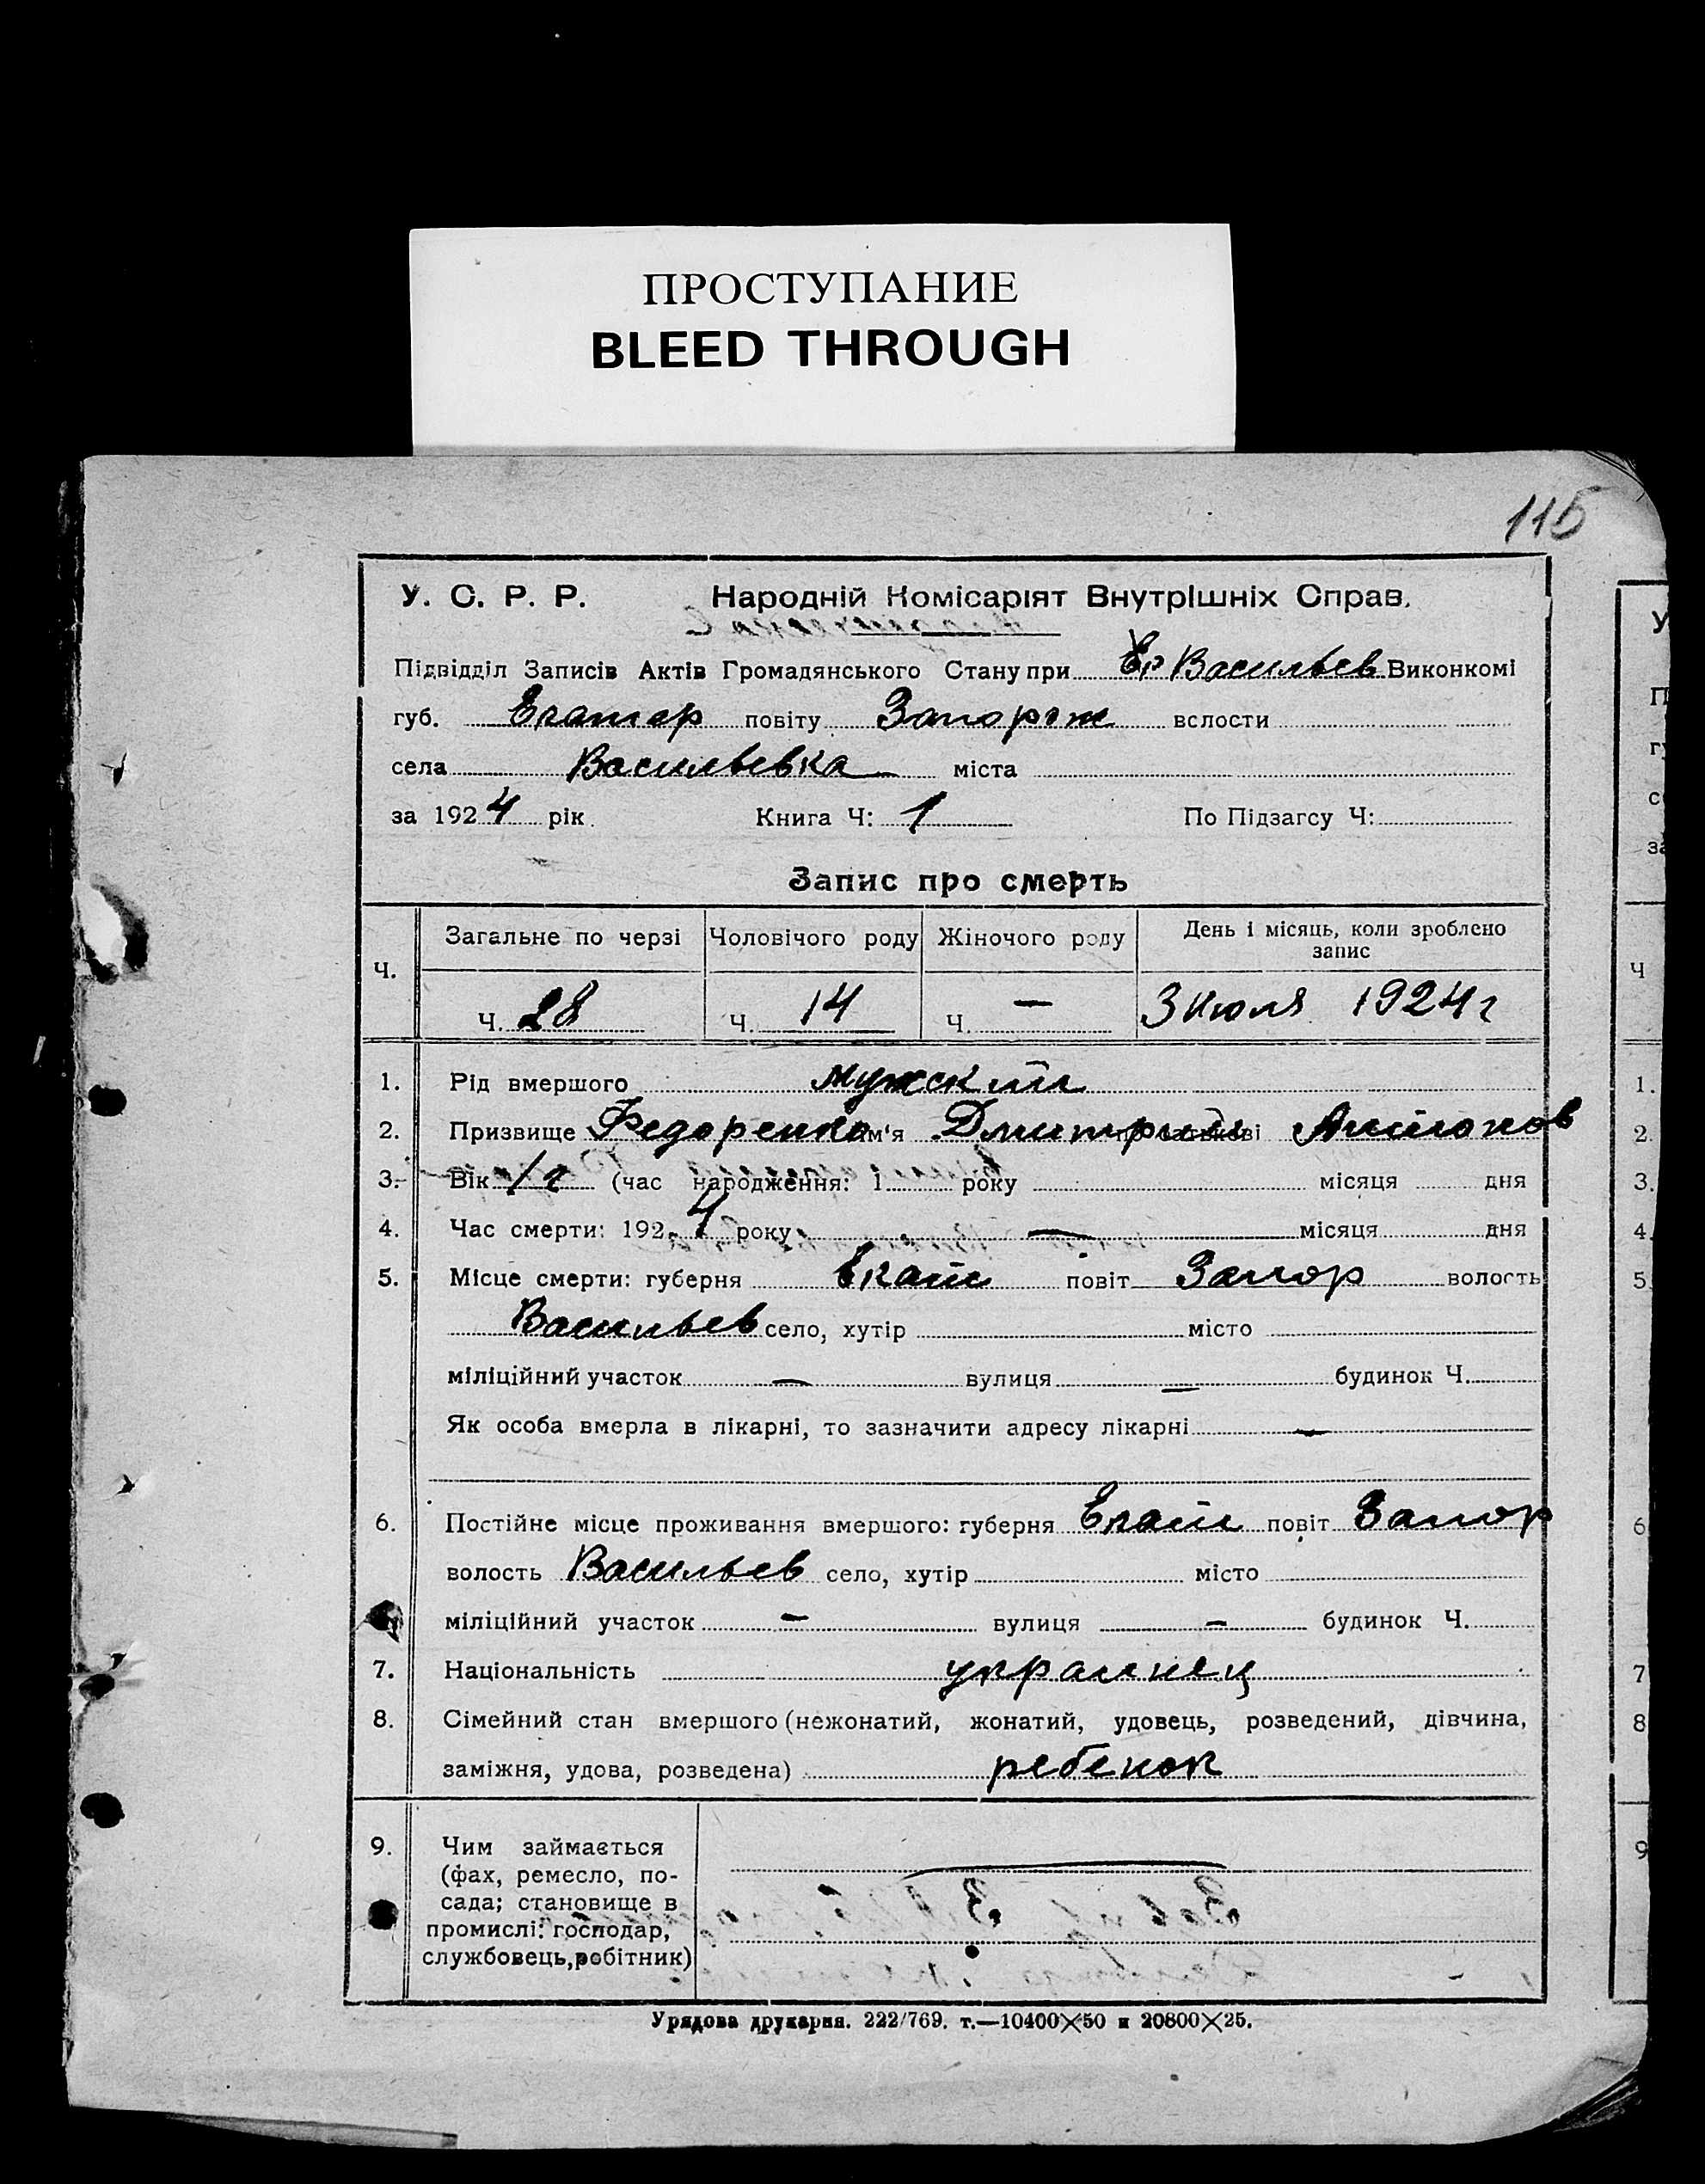 ПРОСТУПАНИЕ
BLEED THROUGH
115
У. С. Р. Р. Народній Комісаріят Внутрішніх Справ.
Підвідділ Записів Актів Громадянського Стану при Васильев Виконкомі
губ. Екатер повіту Запорож вслости
села Васильевка міста
за 1924 рік. Книга Ч: 1 По Підзагсу Ч:
Запис про смерть
Ч. Загальне по черзі Чоловічого роду Жіночого роду День і місяць, коли зроблено запис
Ч. 28 Ч. 14 Ч. — 3 Июля 1924 г
1. Рід вмершого мужский
2. Призвище Федоренко им'я Дмитрий по батькові Антонов
3. Вік 1 г (час народження: 1 року місяця дня
4. Час смерти: 1924 року — місяця дня
5. Місце смерти: губерня Екат повіт Запор волость
Васильев село, хутір місто
міліційний участок — вулиця — будинок Ч.
Як особа вмерла в лікарні, то зазначити адресу лікарні —
6. Постійне місце проживання вмершого: губерня Екат повіт Запор
волость Васильев село, хутір місто
міліційний участок — вулиця — будинок Ч.
7. Національність украинец
8. Сімейний стан вмершого (нежонатий, жонатий, удовець, розведений, дівчина,
заміжня, удова, розведена) ребенок
9. Чим займається —
(фах, ремесло, по-
сада; становище в
промислі: господар,
службовець, робітник)
Урядова друкарня. 222/769. т.—10400×50 и 20800×25.